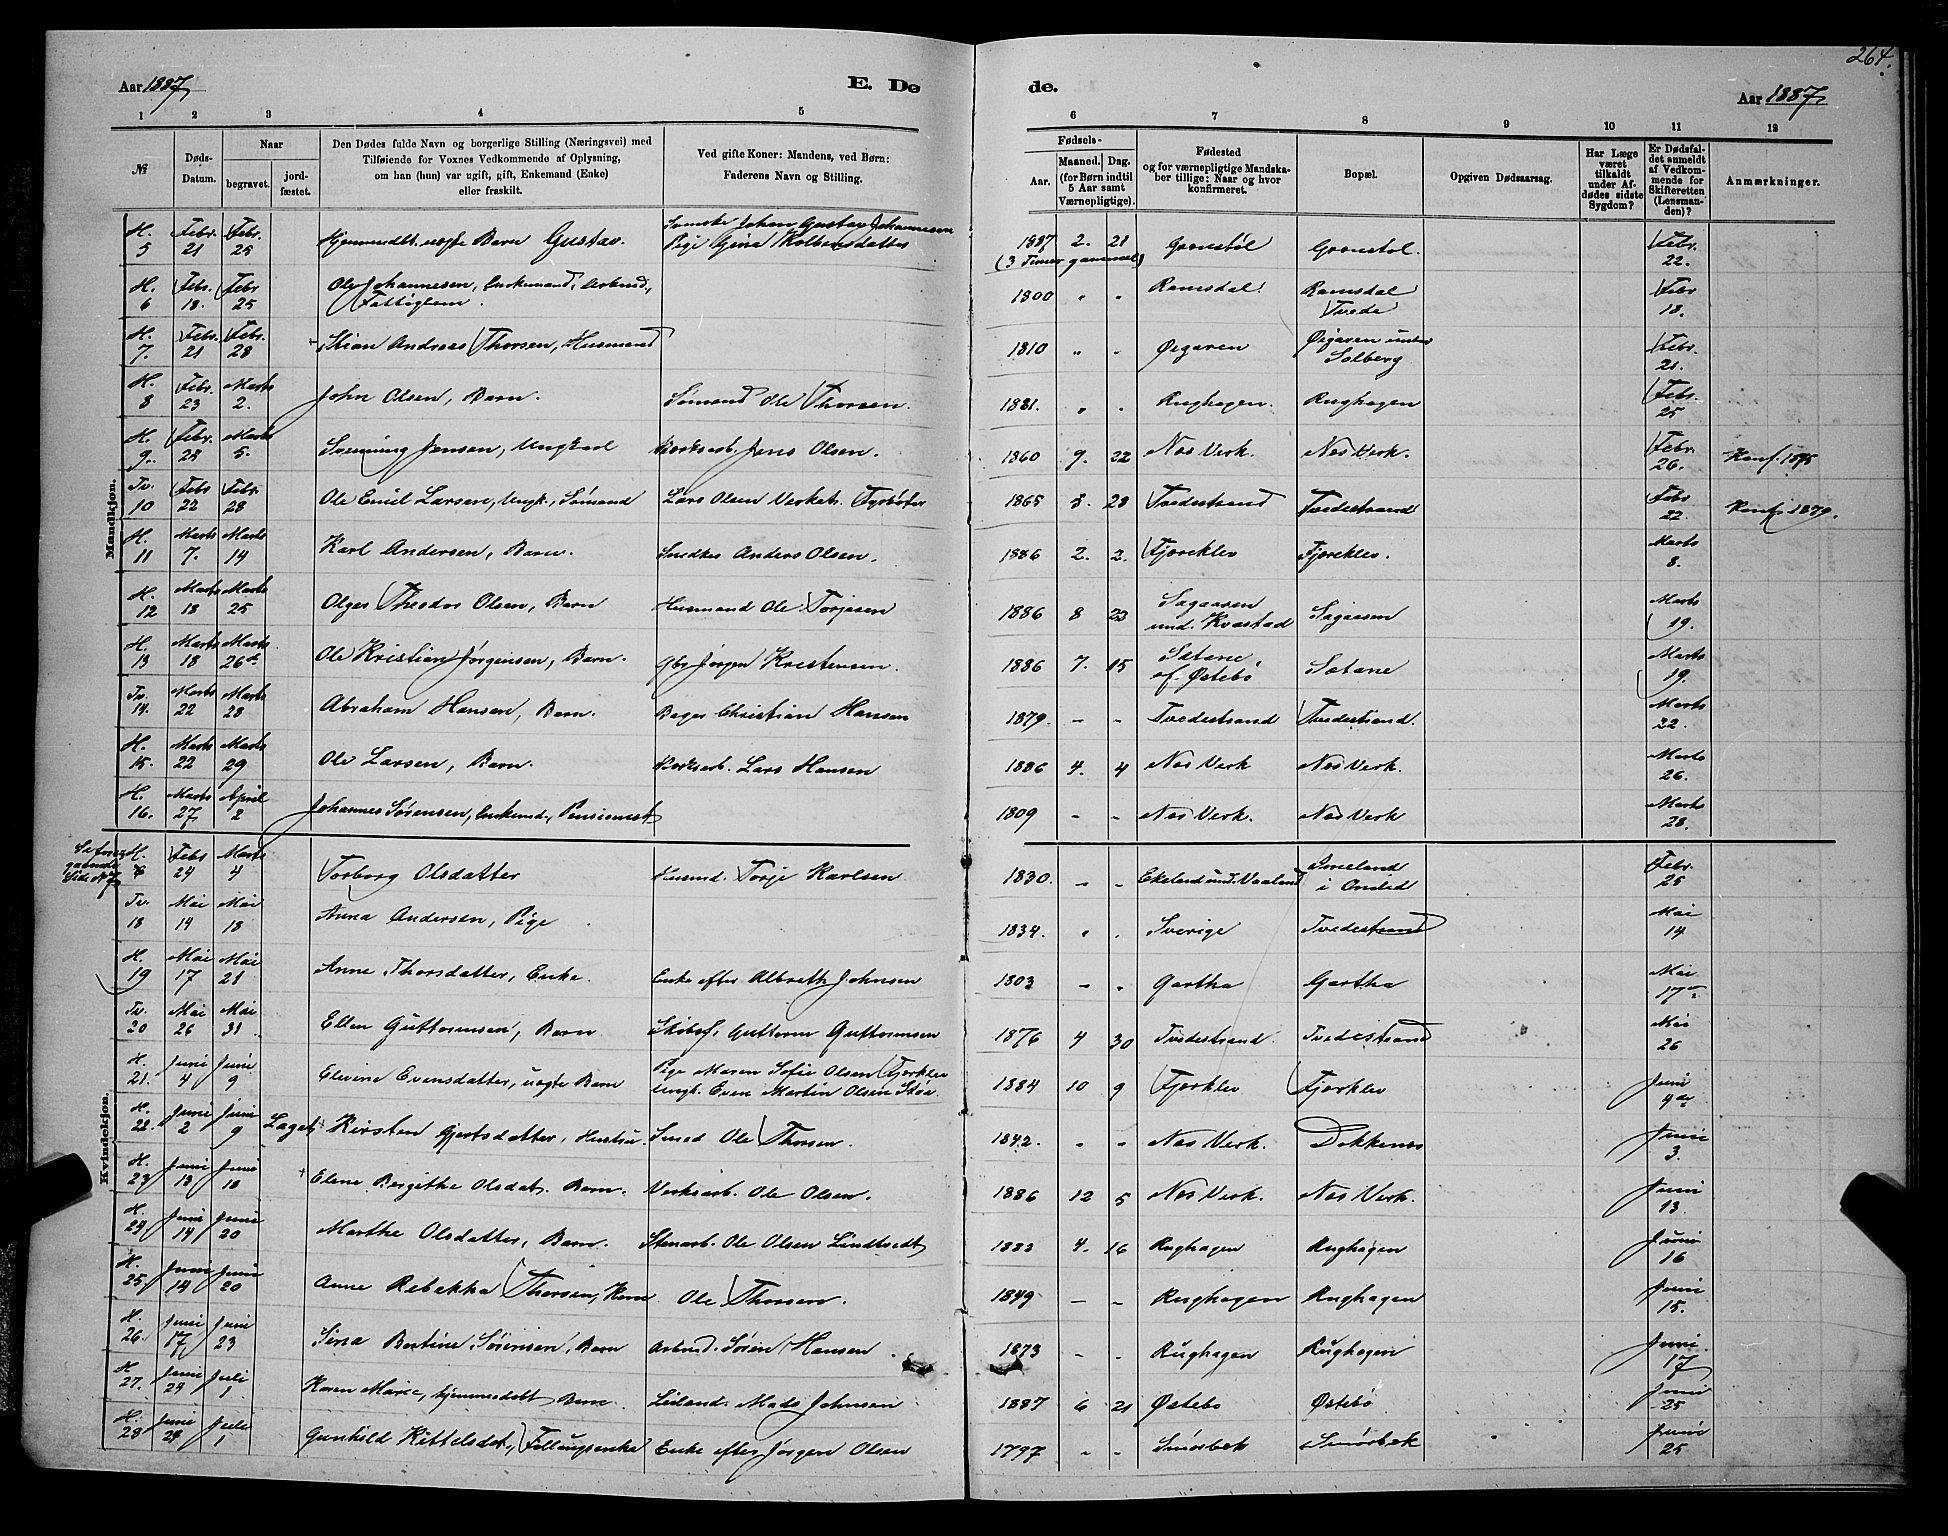 264.
Aar 1887
E. Døde.
Aar 1887
1 2 3 4 5 6 7 8 9 10 11 12
№
Døds-Datum.
Naar
begravet.
jordfæstet.
Den Dødes fulde Navn og borgerlige Stilling (Næringsvei) med
Tilføiende for Voxnes Vedkommende af Oplysning,
om han (hun) var ugift, gift, Enkemand (Enke)
eller fraskilt.
Ved gifte Koner: Mandens, ved Børn:
Faderens Navn og Stilling.
Fødsels-
Aar.
Maaned. Dag.
(for Børn indtil
5 Aar samt
Værnepligtige).
Fødested
og for værnepligtige Mandskaber tillige: Naar og hvor
konfirmeret.
Bopæl.
Opgiven Dødsaarsag.
Har Læge
været
tilkaldt
under Afdødes sidste
Sygdom?
Er Dødsfaldet anmeldt
af Vedkommende for
Skifteretten
(Lensmanden)?
Anmærkninger.
Mandkjøn.
H. 5 Febr. 21 Febr. 25 Hjemmedbt. uegte Barn Gustav. Johan Gustav Johannesen Pige Gina 1887 2. 21 (3 Timer gammel) Febr. 22.
H. 6 Febr. 18. Febr 25 Ole Johannesen, Enkemand, Fattiglem. 1800 " " Ramsdal. Ramsdal Tvede Febr 18.
H. 7. Febr. 21 Febr. 28 Stian Andreas Thorsen, Husmand 1810 " " Øigaren Øigaren under Solberg Febr. 21.
H. 8 Febr. 23 Marts 2. John Olsen, Barn. Sømand Ole Thorsen. 1881. " " Rughagen. Rughagen Febr. 25
H. 9. Febr. 28 Marts 5. Svenning Jensen, Ungkarl Verksarb. Jens Olsen. 1860 9. 22 Nes Verk. Nes Verk. Febr 26. Konf. 1875
Tv. 10 Febr 22 Febr. 28 Ole Emil Larsen, Ungk., Sømand Lars Olsen 1865 3. 28 Tvedestrand Tvedestrand Febr 22. Konf. 1879.
H. 11 Marts 7. Marts 14 Karl Andersen, Barn. Snedker Anders Olsen. 1886 2. 2. Fjæreklev Fjæreklev. Marts 8.
H. 12 Marts 18 Marts 25 Olger Theodor Olsen, Barn Husmand Ole Torjesen 1886 8 23 Sagaasen und. Kvastad Sagaasen Marts 19.
H. 13 Marts 18 Marts. 26 Ole Kristian Jørgensen, Barn. Gbr Jørgen Kristensen. 1886 7. 15 Sætane af Østebø Sætane Marts 19.
Tv. 14. Marts 22 Marts 28 Abraham Hansen, Barn. Bager Christian Hansen 1879. - - Tvedestrand Tvedestrand. Marts 22.
H. 15. Marts 22 Marts 29 Ole Larsen, Barn. Verksarb. Lars Hansen 1886 4. 4 Nes Verk Nes Verk. Marts 26.
H. 16. Marts 27 April 2 Johannes Sørensen, Enkemd., Pensionist 1809 - - Nes Verk. Nes Verk Marts 28.
Kvindekjøn.
H. Febr 24 Marts 4 Torborg Olsdatter Husmd. Torje Karlsen 1830. - - Ekeland und. Vaaland Febr. 25
Tv. 18 Mai 14 Mai 18 Anna Andersen, Pige 1834. " " Sverige Tvedestrand Mai 14
H. 19 Mai 17 Mai 21 Anne Thorsdatter, Enke. Enke efter Albreth Johnsen 1803 - " Gartha Gartha Mai 17
Tv. 20 Mai 26 Mai 31 Ellen Guttormsen, Barn Guttorm Guttormsen 1876 4 30 Tvedestrand. Tvedestrand Mai 26
H. 21. Juni 4 Juni 9 Elevine Evensdatter, uegte Barn Pige Maren Sofie Olsen Fjærklev Ungk. Even Martin Olsen 1884 10 9 Fjærklev Fjærklev Juni 4
H. 22. Juni 2 Juni 9 Kirsten Gjertsdatter, Hustru Smed Ole Thorsen. 1842. " " Nes Verk. Dokkenes Juni 3.
H. 23 Juni 13 Juni 18 Elene Bergithe Olsdat. Barn. Verksarb. Ole Olsen. 1886 12 5 Nes Verk. Nes Verk. Juni 13.
H. 24 Juni 14 Juni 20 Marthe Olsdatter, Barn. Stenarb. Ole Olsen Lindtvedt 1883 4. 16 Rughagen Rughagen Juni 16
H. 25. Juni 14 Juni 20 Anne Rebekka Thorsen, Kone Ole Thorsen. 1849 - - Rughagen Rughagen Juni 15.
H. 26. Juni 17 Juni 23 Sina Bertine Sørensen, Barn Arbmd. Søren Hansen. 1873 - - Rughagen Rughagen Juni 17
H. 27. Juni 24 Juli 1 Karen Marie, hjemmedøbt Barn Leiland. Mads Johnsen 1887 6 21 Østebø Østebø Juni 25
H. 28 Juni 24 Juli 1 Gunhild Kittelsdat., Enke efter Jørgen Olsen 1797 " " Smørbek Smørbek Juni 25